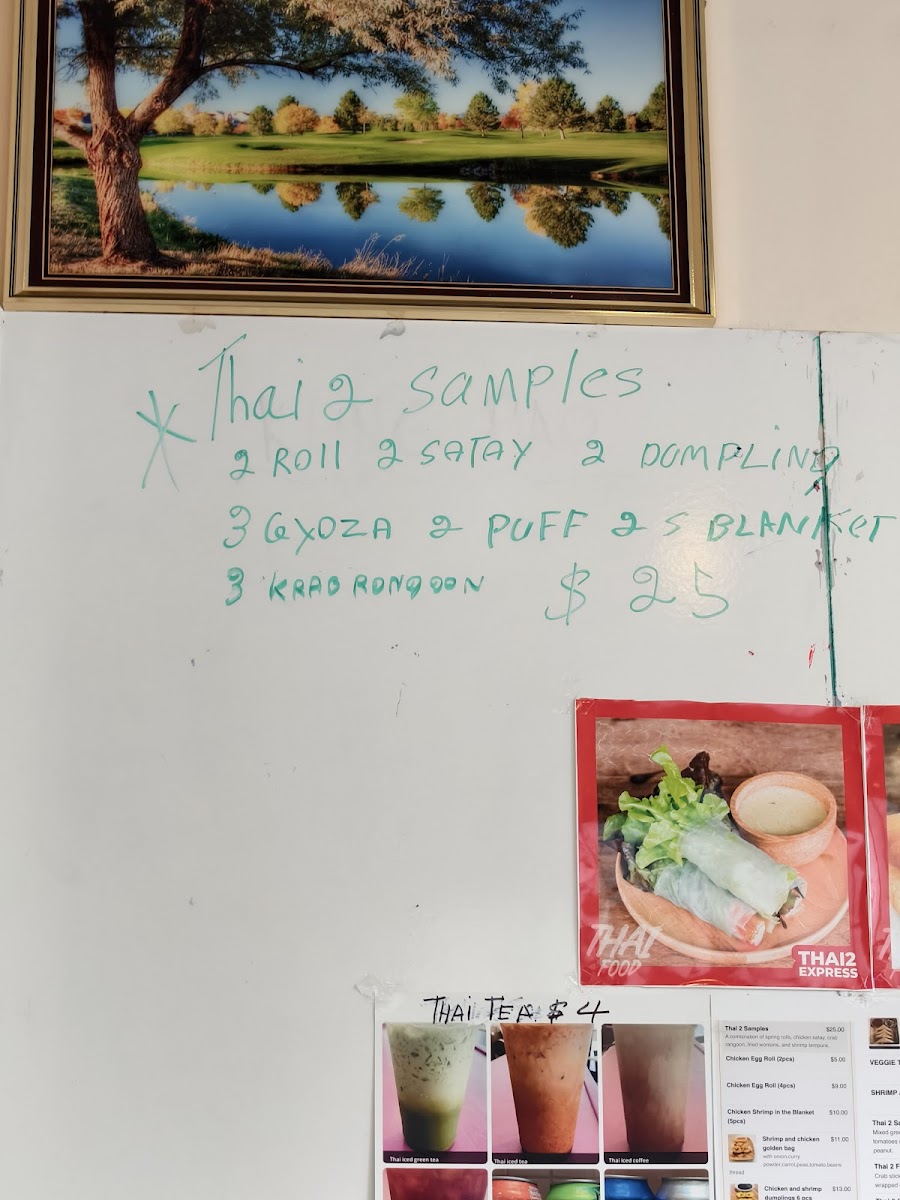 Thai 2 SAMPles
2 Roll 2 SATAY 2 DOMPLING
3 GYOZA 2 PUFF 2 S BLANKET
3 KRAB RONGOON $ 25
THAI FOOD
THAI2
EXPRESS
THAI TEA $ 4
Thai iced green tea
Thai iced tea
Thai iced coffee
Thai 2 Samples $25.00
A combination of spring rolls, chicken satay, crab
rangoon, fried wontons, and shrimp tempura.
Chicken Egg Roll (2pcs) $5.00
Chicken Egg Roll (4pcs) $9.00
Chicken Shrimp in the Blanket $10.00
(5pcs)
Shrimp and chicken $11.00
golden bag
with onion,curry
powder,carrot,peas,tomato,beans
thread
Chicken and shrimp $13.00
dumplings 6 pcs
VEGGIE
SHRIMP
Thai 2
Mixed
tomatoes
peanut.
Thai 2
Crab
wrapped